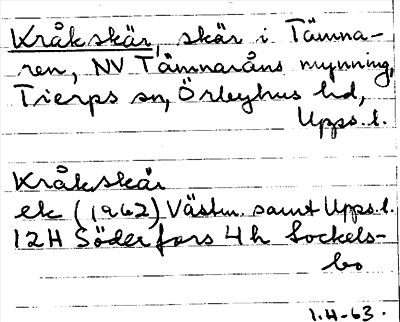 Kråkskär, skär i Tämna-
ren, NV Tämnaråns mynning,
Tierps sn, Örbyhus hd,
Upps. l.
Kråkskär
ek (1962) Västm. samt Upps. l.
12H Söderfors 4h Sockels-
bo
1.4-63.